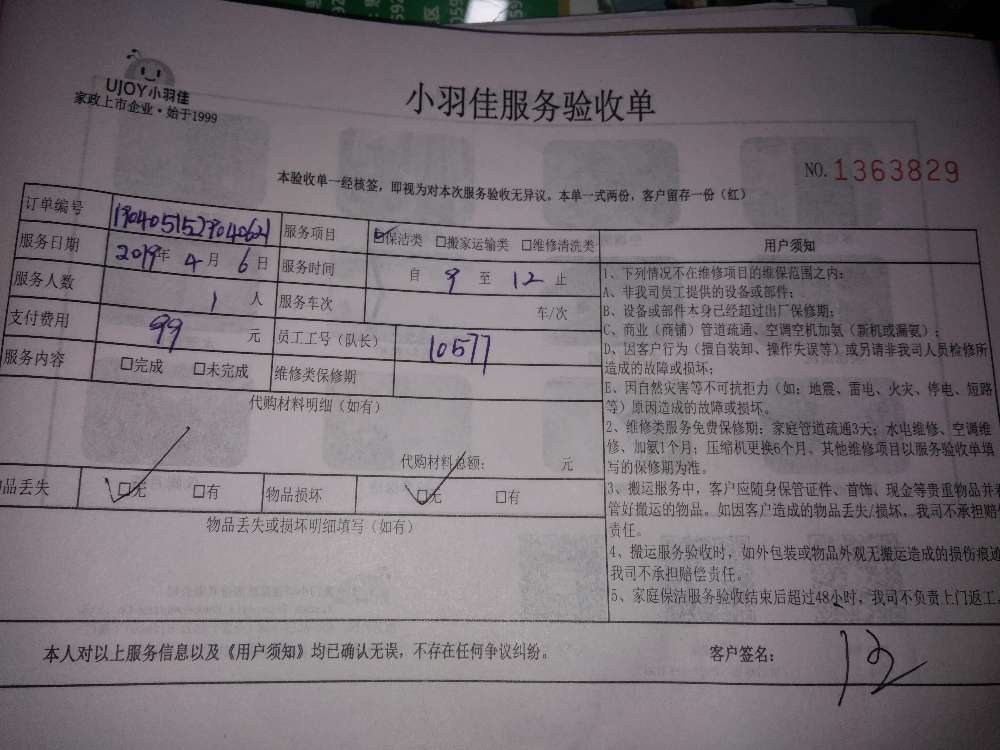 UJOY小羽佳
家政上市企业·始于1999
小羽佳服务验收单
NO.1363829
本验收单一经核签，即视为对本次服务验收无异议。本单一式两份，客户留存一份（红）
订单编号 服务项目 ☑保洁类 □搬家运输类 □维修清洗类
服务日期 2019年 4月 6日 服务时间 自 9 至 12 止
服务人数 1 人 服务车次 车/次
支付费用 99 元 员工工号（队长） 10577
服务内容 □完成 □未完成 维修类保修期
代购材料明细（如有）
代购材料总额： 元
品丢失 ☑无 □有 物品损坏 ☑无 □有
物品丢失或损坏明细填写（如有）
用户须知
1、下列情况不在维修项目的维保范围之内：
A、非我司员工提供的设备或部件；
B、设备或部件本身已经超过出厂保修期；
C、商业（商铺）管道疏通、空调空机加氨（新机或漏氨）；
D、因客户行为（擅自装卸、操作失误等）或另请非我司人员检修所
造成的故障或损坏；
E、因自然灾害等不可抗拒力（如：地震、雷电、火灾、停电、短路
等）原因造成的故障或损坏。
2、维修类服务免费保修期：家庭管道疏通3天；水电维修、空调维
修、加氨1个月；压缩机更换6个月，其他维修项目以服务验收单填
写的保修期为准。
3、搬运服务中，客户应随身保管证件、首饰、现金等贵重物品并
管好搬运的物品。如因客户造成的物品丢失/损坏，我司不承担赔
责任。
4、搬运服务验收时，如外包装或物品外观无搬运造成的损伤痕
我司不承担赔偿责任。
5、家庭保洁服务验收结束后超过48小时，我司不负责上门返工
本人对以上服务信息以及《用户须知》均已确认无误，不存在任何争议纠纷。 客户签名：